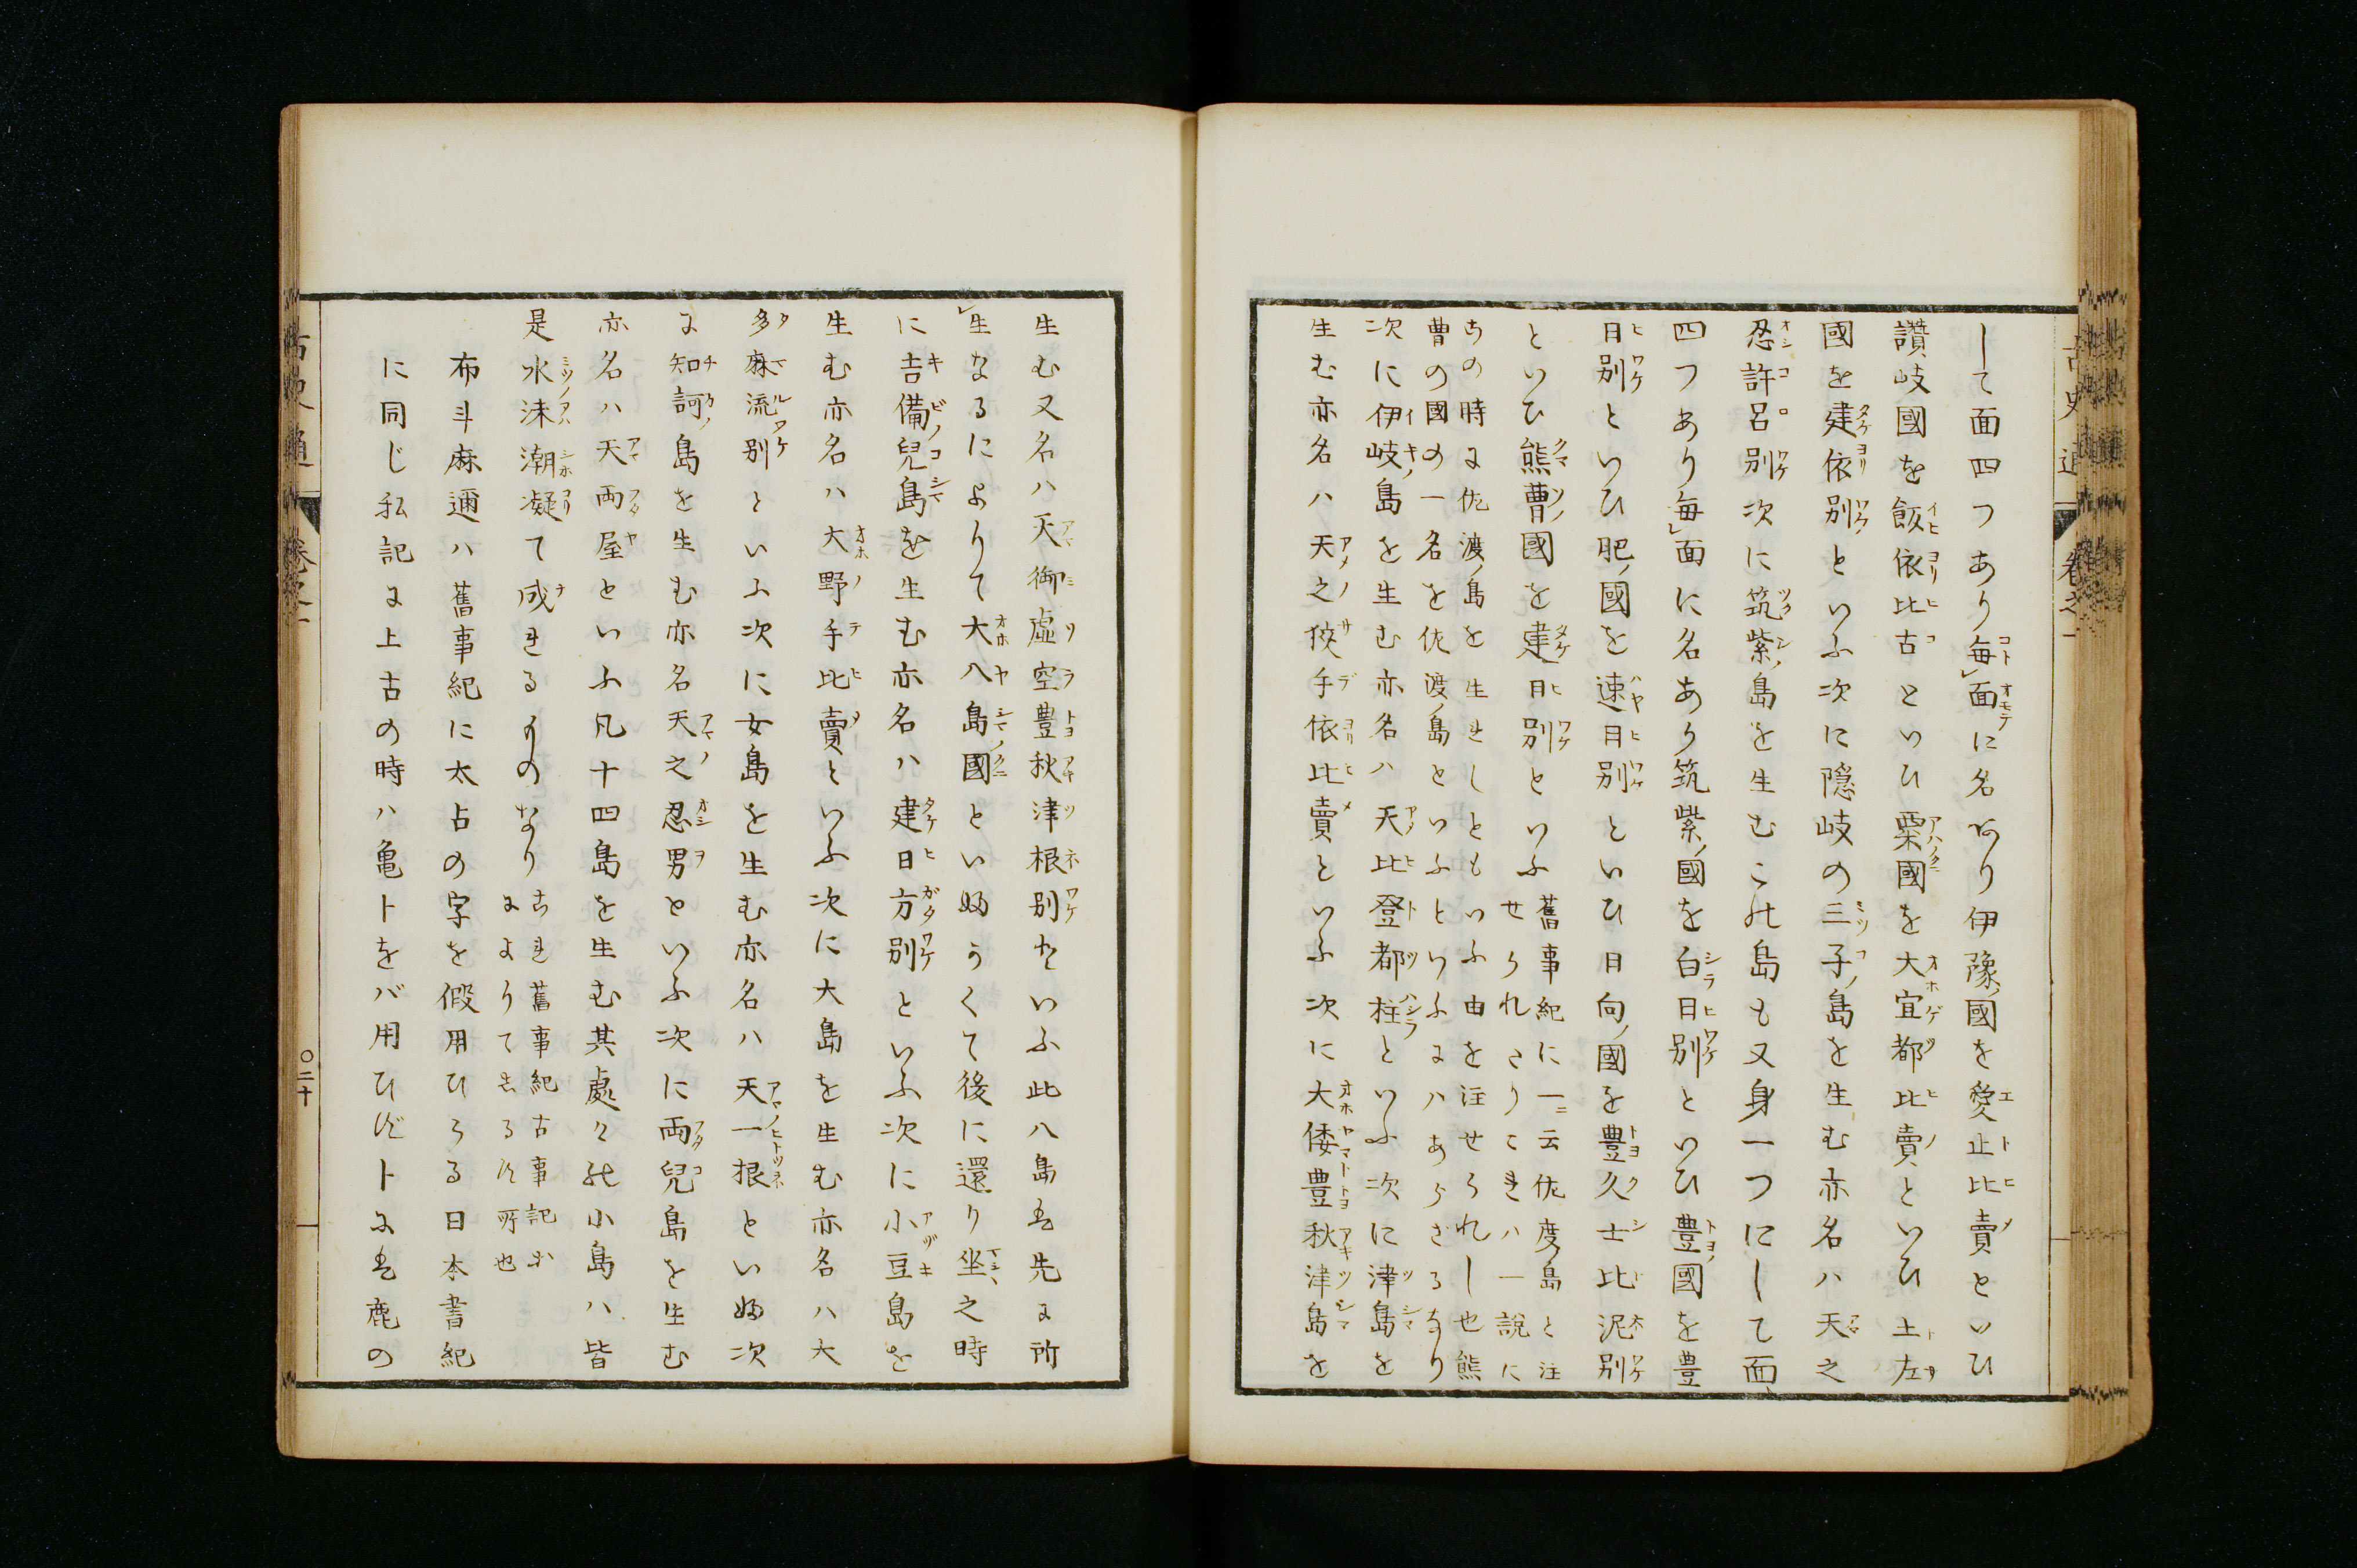 して面四つあり毎面に名あり伊豫國を愛止比賣といひ
讃岐國を飯依比古といひ粟國を大宜都比賣といひ土左
國を建依別といふ次に隱岐の三子島を生む亦名ハ天之
忍許呂別次に筑紫島を生むこの島も又身一つにして面
四つあり毎面に名あり筑紫國を白日別といひ豊國を豊
日別といひ肥國を速日別といひ日向國を豊久士比泥別
といひ熊曹國を建日別といふ
舊事紀に一云佐度島と注
せられさりこれハ一説に
この時に佐渡島を生れしともいふ由を注せられし也熊
曹の國の一名を佐渡島といふといふにハあらざるなり
次に伊岐島を生む亦名ハ天比登都柱といふ次に津島を
生む亦名ハ天之狹手依比賣といふ次に大倭豊秋津島を
生む又名ハ天御虚空豊秋津根別といふ此八島を先に所
生なるによりて大八島國といふかくて後に還り坐之時
に吉備兒島を生む亦名ハ建日方別といふ次に小豆島を
生む亦名ハ大野手比賣といふ次に大島を生む亦名ハ大
多麻流別といふ次に女島を生む亦名ハ天一根といふ次
に知訶島を生む亦名天之忍男といふ次に両兒島を生む
亦名ハ天両屋といふ凡十四島を生む其處々の小島ハ皆
是水沫潮凝て成れるものなり
これ舊事紀古事記お
によりてしるす所也
布斗麻邇ハ舊事紀に太占の字を假用ひらる日本書紀
に同じ私記に上古の時ハ亀卜をバ用ひず卜には鹿の
古史通
卷之一
〇二十